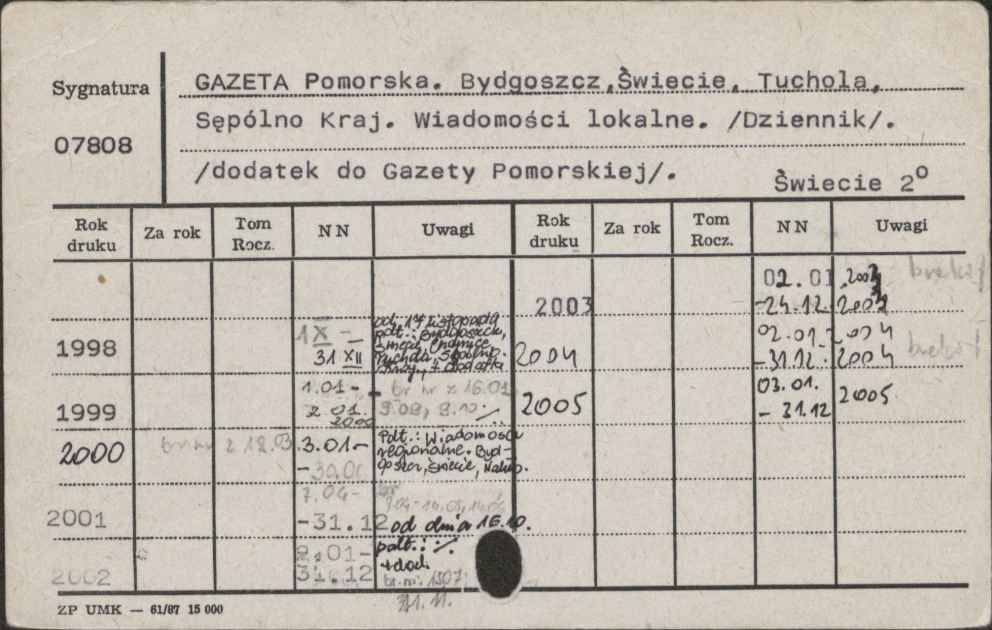 Sygnatura
07808
GAZETA Pomorska. Bydgoszcz, Świecie, Tuchola,
Sępólno Kraj. Wiadomości lokalne. /Dziennik/.
/dodatek do Gazety Pomorskiej/.
Świecie 2º
Rok druku Za rok Tom Rocz. NN Uwagi Rok druku Za rok Tom Rocz. NN Uwagi
1998 1 X – 31 XII od: 17 listopada
podt.: Bydgoszcz,
1999 1.01 – 2.01. 2000 br nr z 16.01
9.09, 8.10.
2000 br nr z 18.03. 3.01 – - 30.06 Podt.: Wiadomości
regionalne. Byd-
goszcz, Świecie, Nakło.
2001 7.04- -31.12 od dnia 16.10.
2002 2.01- 31.12 podt.:
+dod.
br. nr.
21.11.
2003 02.01 -24.12.
2004 02.01.2004 -31.12. 2004
2005 03.01. - 31.12 2005
ZP UMK — 61/87 15 000